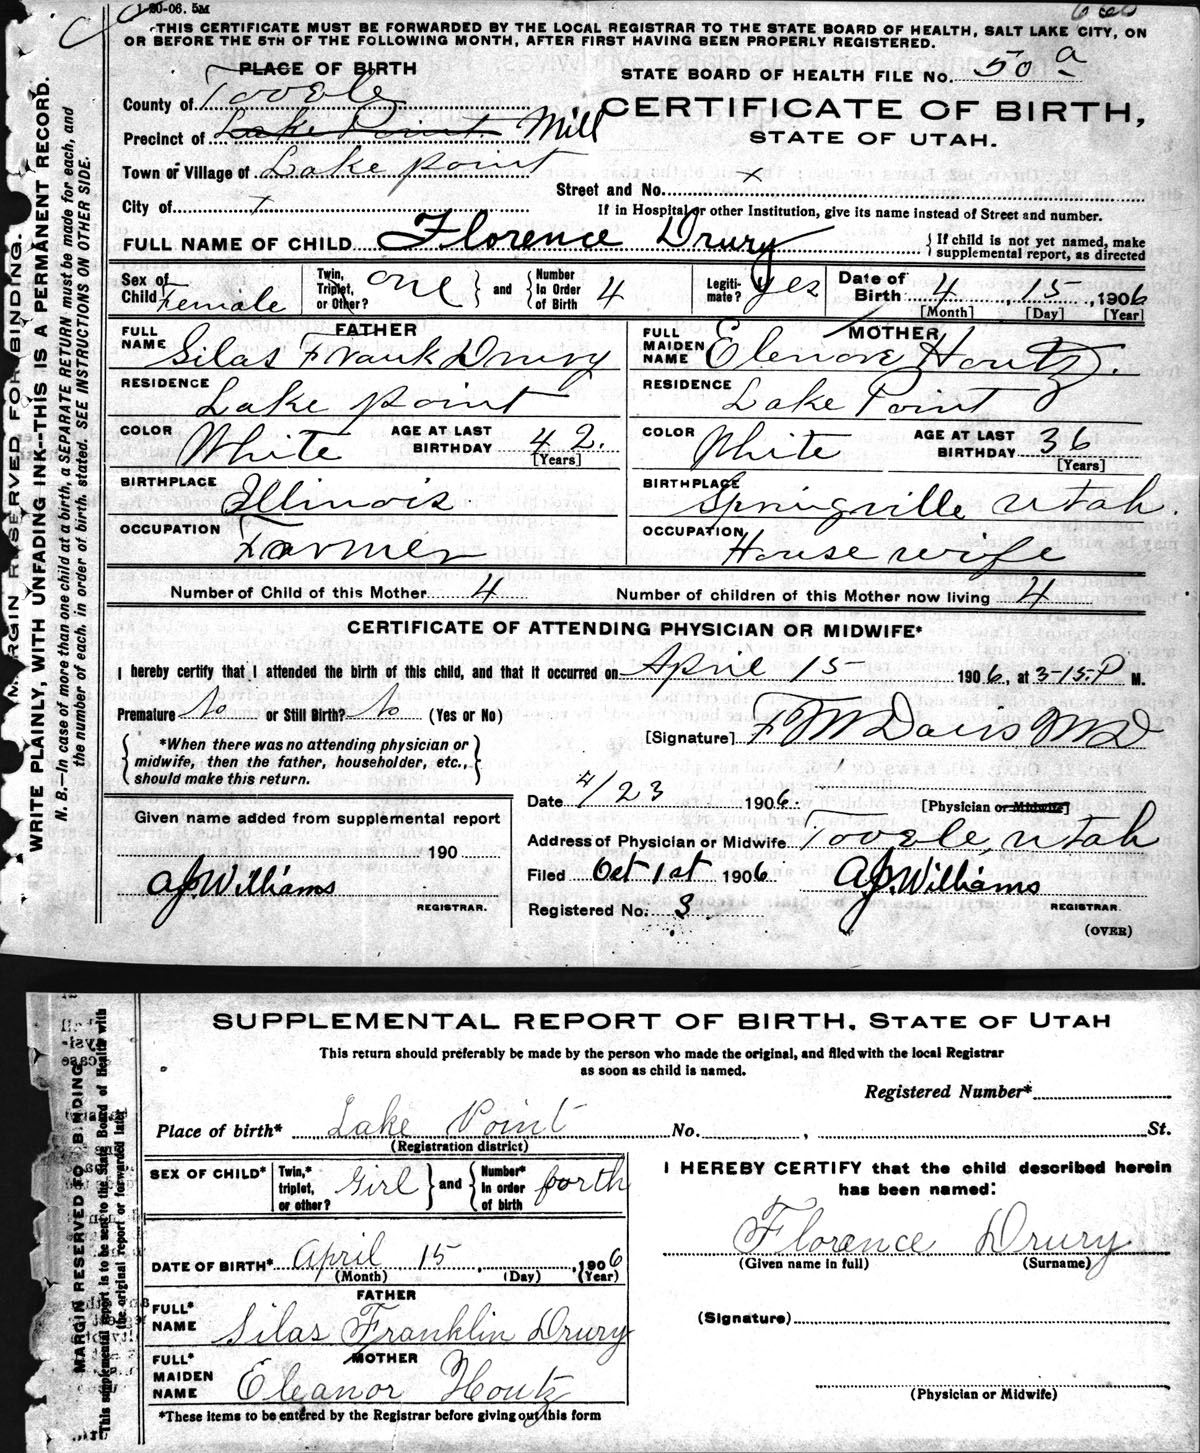 1-20-06. 5M
THIS CERTIFICATE MUST BE FORWARDED BY THE LOCAL REGISTRAR TO THE STATE BOARD OF HEALTH, SALT LAKE CITY, ON
OR BEFORE THE 5TH OF THE FOLLOWING MONTH, AFTER FIRST HAVING BEEN PROPERLY REGISTERED.
PLACE OF BIRTH
STATE BOARD OF HEALTH FILE No. 50 a
County of Tooele
CERTIFICATE OF BIRTH,
Precinct of Lake Point Mill
STATE OF UTAH.
Town or Village of Lake point
Street and No. x
City of x
If in Hospital or other Institution, give its name instead of Street and number.
FULL NAME OF CHILD Florence Drury { If child is not yet named, make
supplemental report, as directed
Sex of Child Female Twin, Triplet, or Other? one } and { Number In Order of Birth 4 Legiti-mate? yes Date of Birth 4, 15, 1906
[Month] [Day] [Year]
FATHER MOTHER
FULL NAME Silas Frank Drury FULL MAIDEN NAME Elenore Houtz.
RESIDENCE Lake point RESIDENCE Lake Point
COLOR White AGE AT LAST BIRTHDAY 42. [Years] COLOR White AGE AT LAST BIRTHDAY 36 [Years]
BIRTHPLACE Illinois BIRTHPLACE Springville Utah.
OCCUPATION Farmer OCCUPATION House wife
Number of Child of this Mother 4 Number of children of this Mother now living 4
CERTIFICATE OF ATTENDING PHYSICIAN OR MIDWIFE*
I hereby certify that I attended the birth of this child, and that it occurred on April 15 1906, at 3-15 P M.
Premature No or Still Birth? No (Yes or No)
[Signature] F M Davis MD
{ *When there was no attending physician or
midwife, then the father, householder, etc.,
should make this return. }
Date 4/23 1906. [Physician or Midwife]
Given name added from supplemental report
Address of Physician or Midwife Tooele, Utah
190
Filed Oct 1st 1906 AJ. Williams
AJ. Williams
REGISTRAR.
REGISTRAR.
Registered No. 3
(OVER)
MARGIN RESERVED FOR BINDING.
WRITE PLAINLY, WITH UNFADING INK--THIS IS A PERMANENT RECORD.
N. B.—In case of more than one child at a birth, a SEPARATE RETURN must be made for each, and
the number of each, in order of birth, stated. SEE INSTRUCTIONS ON OTHER SIDE.
SUPPLEMENTAL REPORT OF BIRTH, STATE OF UTAH
This return should preferably be made by the person who made the original, and filed with the local Registrar
as soon as child is named.
Registered Number*
Place of birth* Lake Point No. , St.
(Registration district)
SEX OF CHILD* Twin,* triplet, or other? Girl } and { Number* in order of birth forth
I HEREBY CERTIFY that the child described herein
has been named:
DATE OF BIRTH* April 15, 1906
(Month) (Day) (Year)
Florance Drury
(Given name in full) (Surname)
FATHER
FULL* NAME Silas Franklin Drury
(Signature)
MOTHER
FULL* MAIDEN NAME Eleanor Houtz
(Physician or Midwife)
*These items to be entered by the Registrar before giving out this form
MARGIN RESERVED FO BINDING
This supplemental report is to be sent to the State Board of Health with
the original report or forwarded later